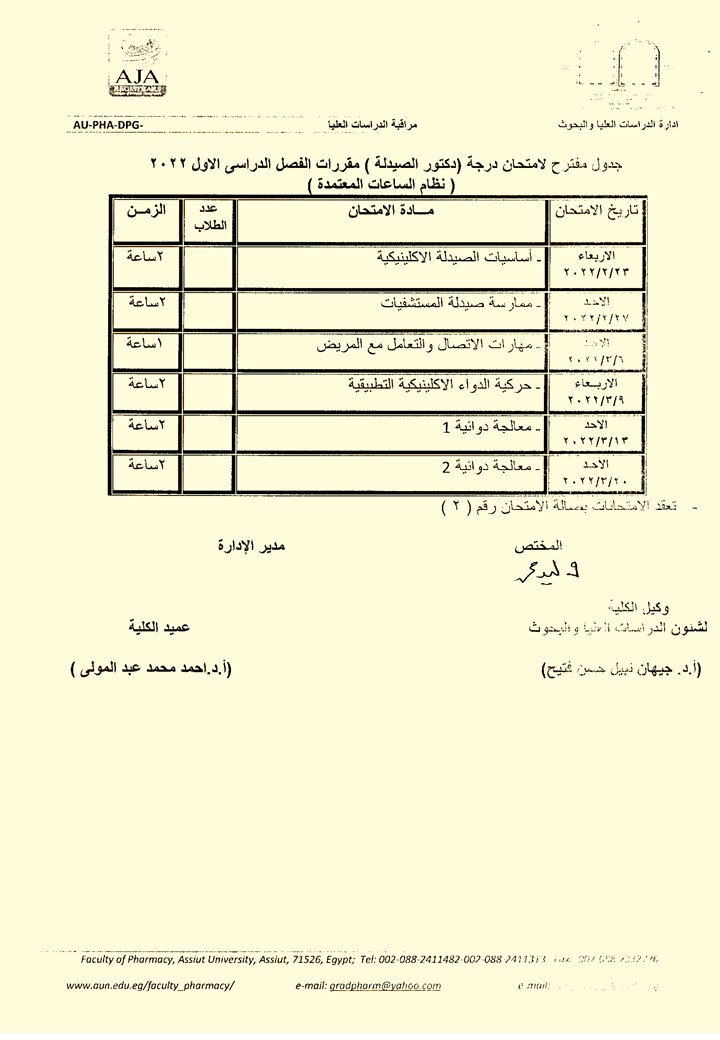 AJA
ادارة الدراسات العليا والبحوث
مراقبة الدراسات العليا
AU-PHA-DPG-
جدول مقترح لامتحان درجة (دكتور الصيدلة ) مقررات الفصل الدراسى الاول ٢٠٢٢
( نظام الساعات المعتمدة )
تاريخ الامتحان مــادة الامتحان عدد الطلاب الزمـن
الاربعاء ٢٠٢٢/٢/٢٣ ـ أساسيات الصيدلة الاكلينيكية ٢ساعة
الاحد ٢٠٢٢/٢/٢٧ ـ ممارسة صيدلة المستشفيات ٢ساعة
الاحد ٢٠٢٢/٣/٦ ـ مهارات الاتصال والتعامل مع المريض ١ساعة
الاربعاء ٢٠٢٢/٣/٩ ـ حركية الدواء الاكلينيكية التطبيقية ٢ساعة
الاحد ٢٠٢٢/٣/١٣ ـ معالجة دوائية 1 ٢ساعة
الاحد ٢٠٢٢/٣/٢٠ ـ معالجة دوائية 2 ٢ساعة
- تعقد الامتحانات بصالة الامتحان رقم ( ٢ )
المختص
مدير الإدارة
وكيل الكلية
لشئون الدراسات العليا والبحوث
عميد الكلية
(أ.د. جيهان نبيل حسن فتيح)
(أ.د.احمد محمد عبد المولى )
Faculty of Pharmacy, Assiut University, Assiut, 71526, Egypt; Tel: 002-088-2411482-002-088 2411313 Fax:
www.aun.edu.eg/faculty_pharmacy/ e-mail: gradpharm@yahoo.com e mail: